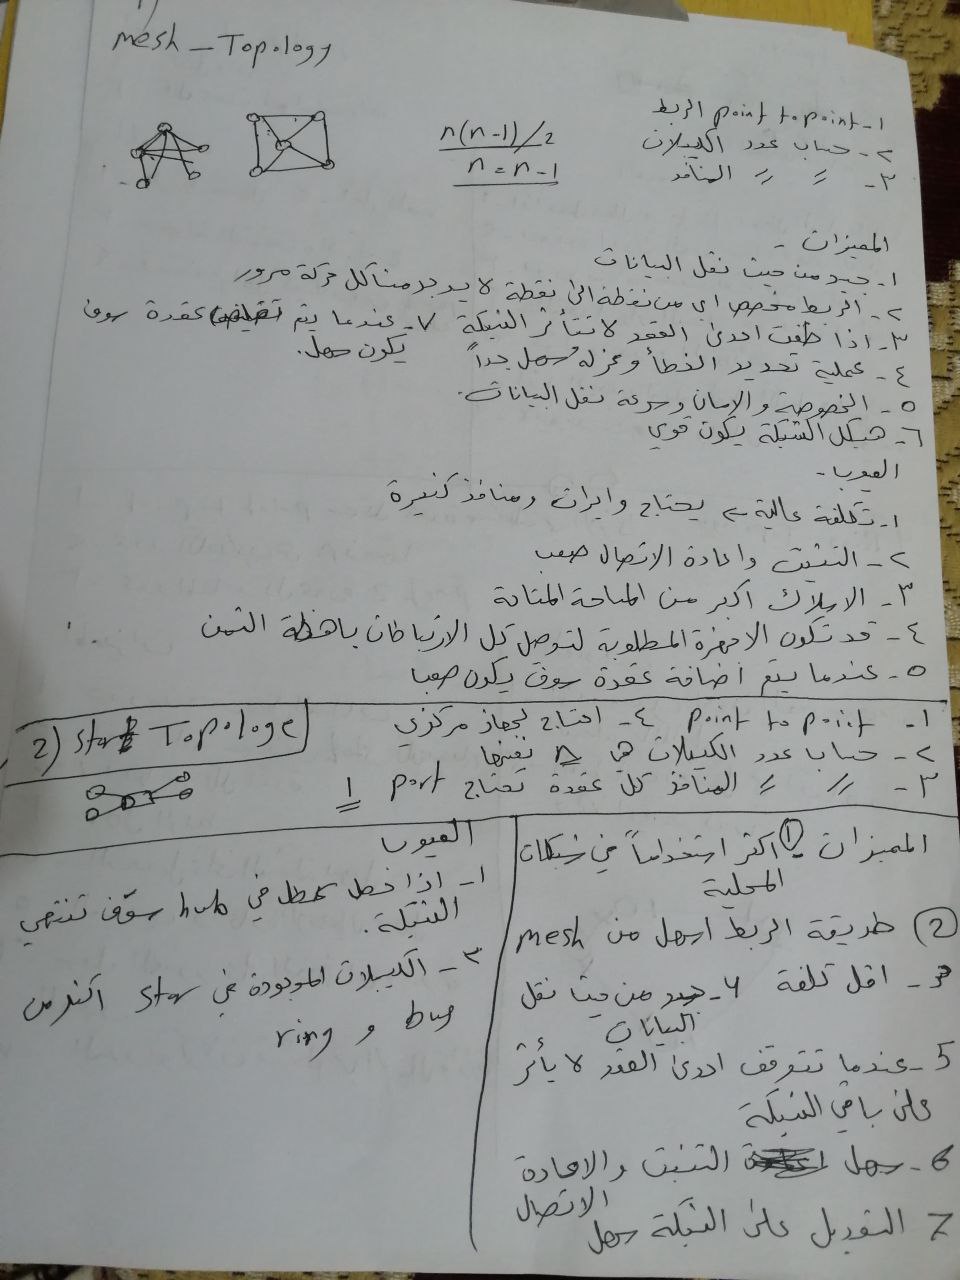 1)
mesh - Topology
١- point to point الربط
٢- حساب عدد الكيبلات n(n-1)/2
٣- 〃 〃 المنافذ n=n-1
المميزات -
١- جيد من حيث نقل البيانات
٢- الربط مخصص اي من نقطة الى نقطة لا يوجد مشاكل حركة مرور
٣- اذا طفت احدى العقد لا تتأثر الشبكة
٤- عملية تحديد الخطأ وعزله سهل جداً
٥- الخصوصة والامان وسرعة نقل البيانات.
٦- هيكل الشبكة يكون قوي
٧- عندما يتم عقدة سوف
يكون سهل.
العيوب -
١- تكلفة عالية ← يحتاج وايرات ومنافذ كثيرة
٢- التثبت واعادة الاتصال صعب
٣- الاسلاك اكبر من المساحة المتاحة
٤- قد تكون الاجهزة المطلوبة لتوصل كل الارتباطات باهظة الثمن
٥- عندما يتم اضافة عقدة سوف يكون صعبا
2) Star Topologe
١- point to point ٤- احتاج لجهاز مركزي
٢- حساب عدد الكيبلات هي n نفسها
٣- 〃 〃 المنافذ كل عقدة تحتاج port 1
المميزات ① اكثر استخداماً في شبكات
المحلية
② طريقة الربط اسهل من mesh
3- اقل تكلفة 4- جيد من حيث نقل
البيانات
5- عندما تتوقف احدى العقد لا يأثر
على باقي الشبكة
6- سهل التثبت والاعادة
الاتصال
7 التعديل على الشبكة سهل
العيوب
١- اذا حصل عطل في hub سوف تنتهي
الشبكة.
٢- الكيبلات الموجودة في star اكثر من
bus و ring